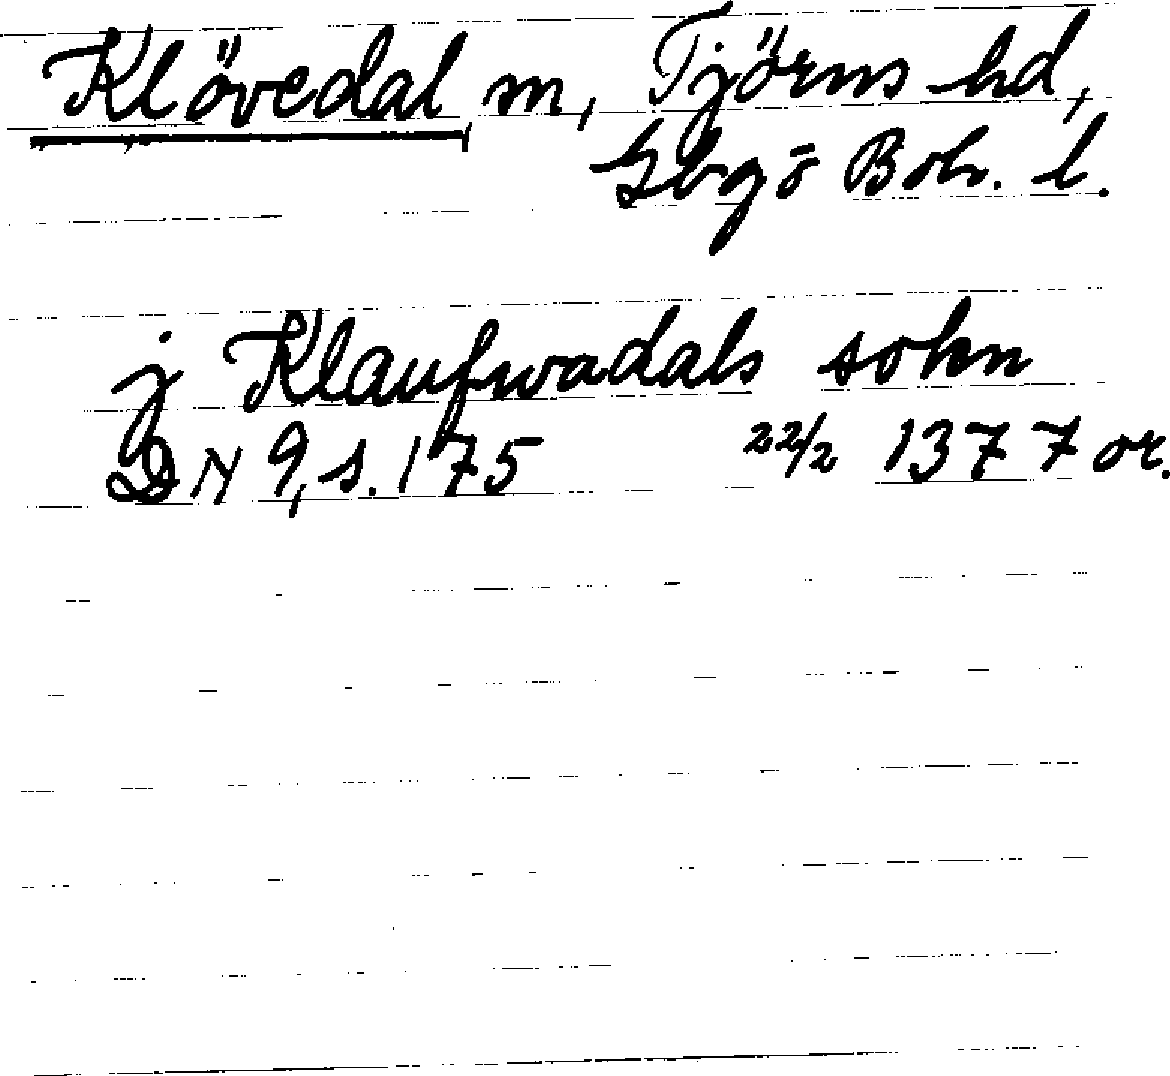 Klövedal, sn, Tjörns hd,
Gbgs ō Boh. l.
j Klaufwadals sokn
DN 9, s. 175 22/2 1377 or.